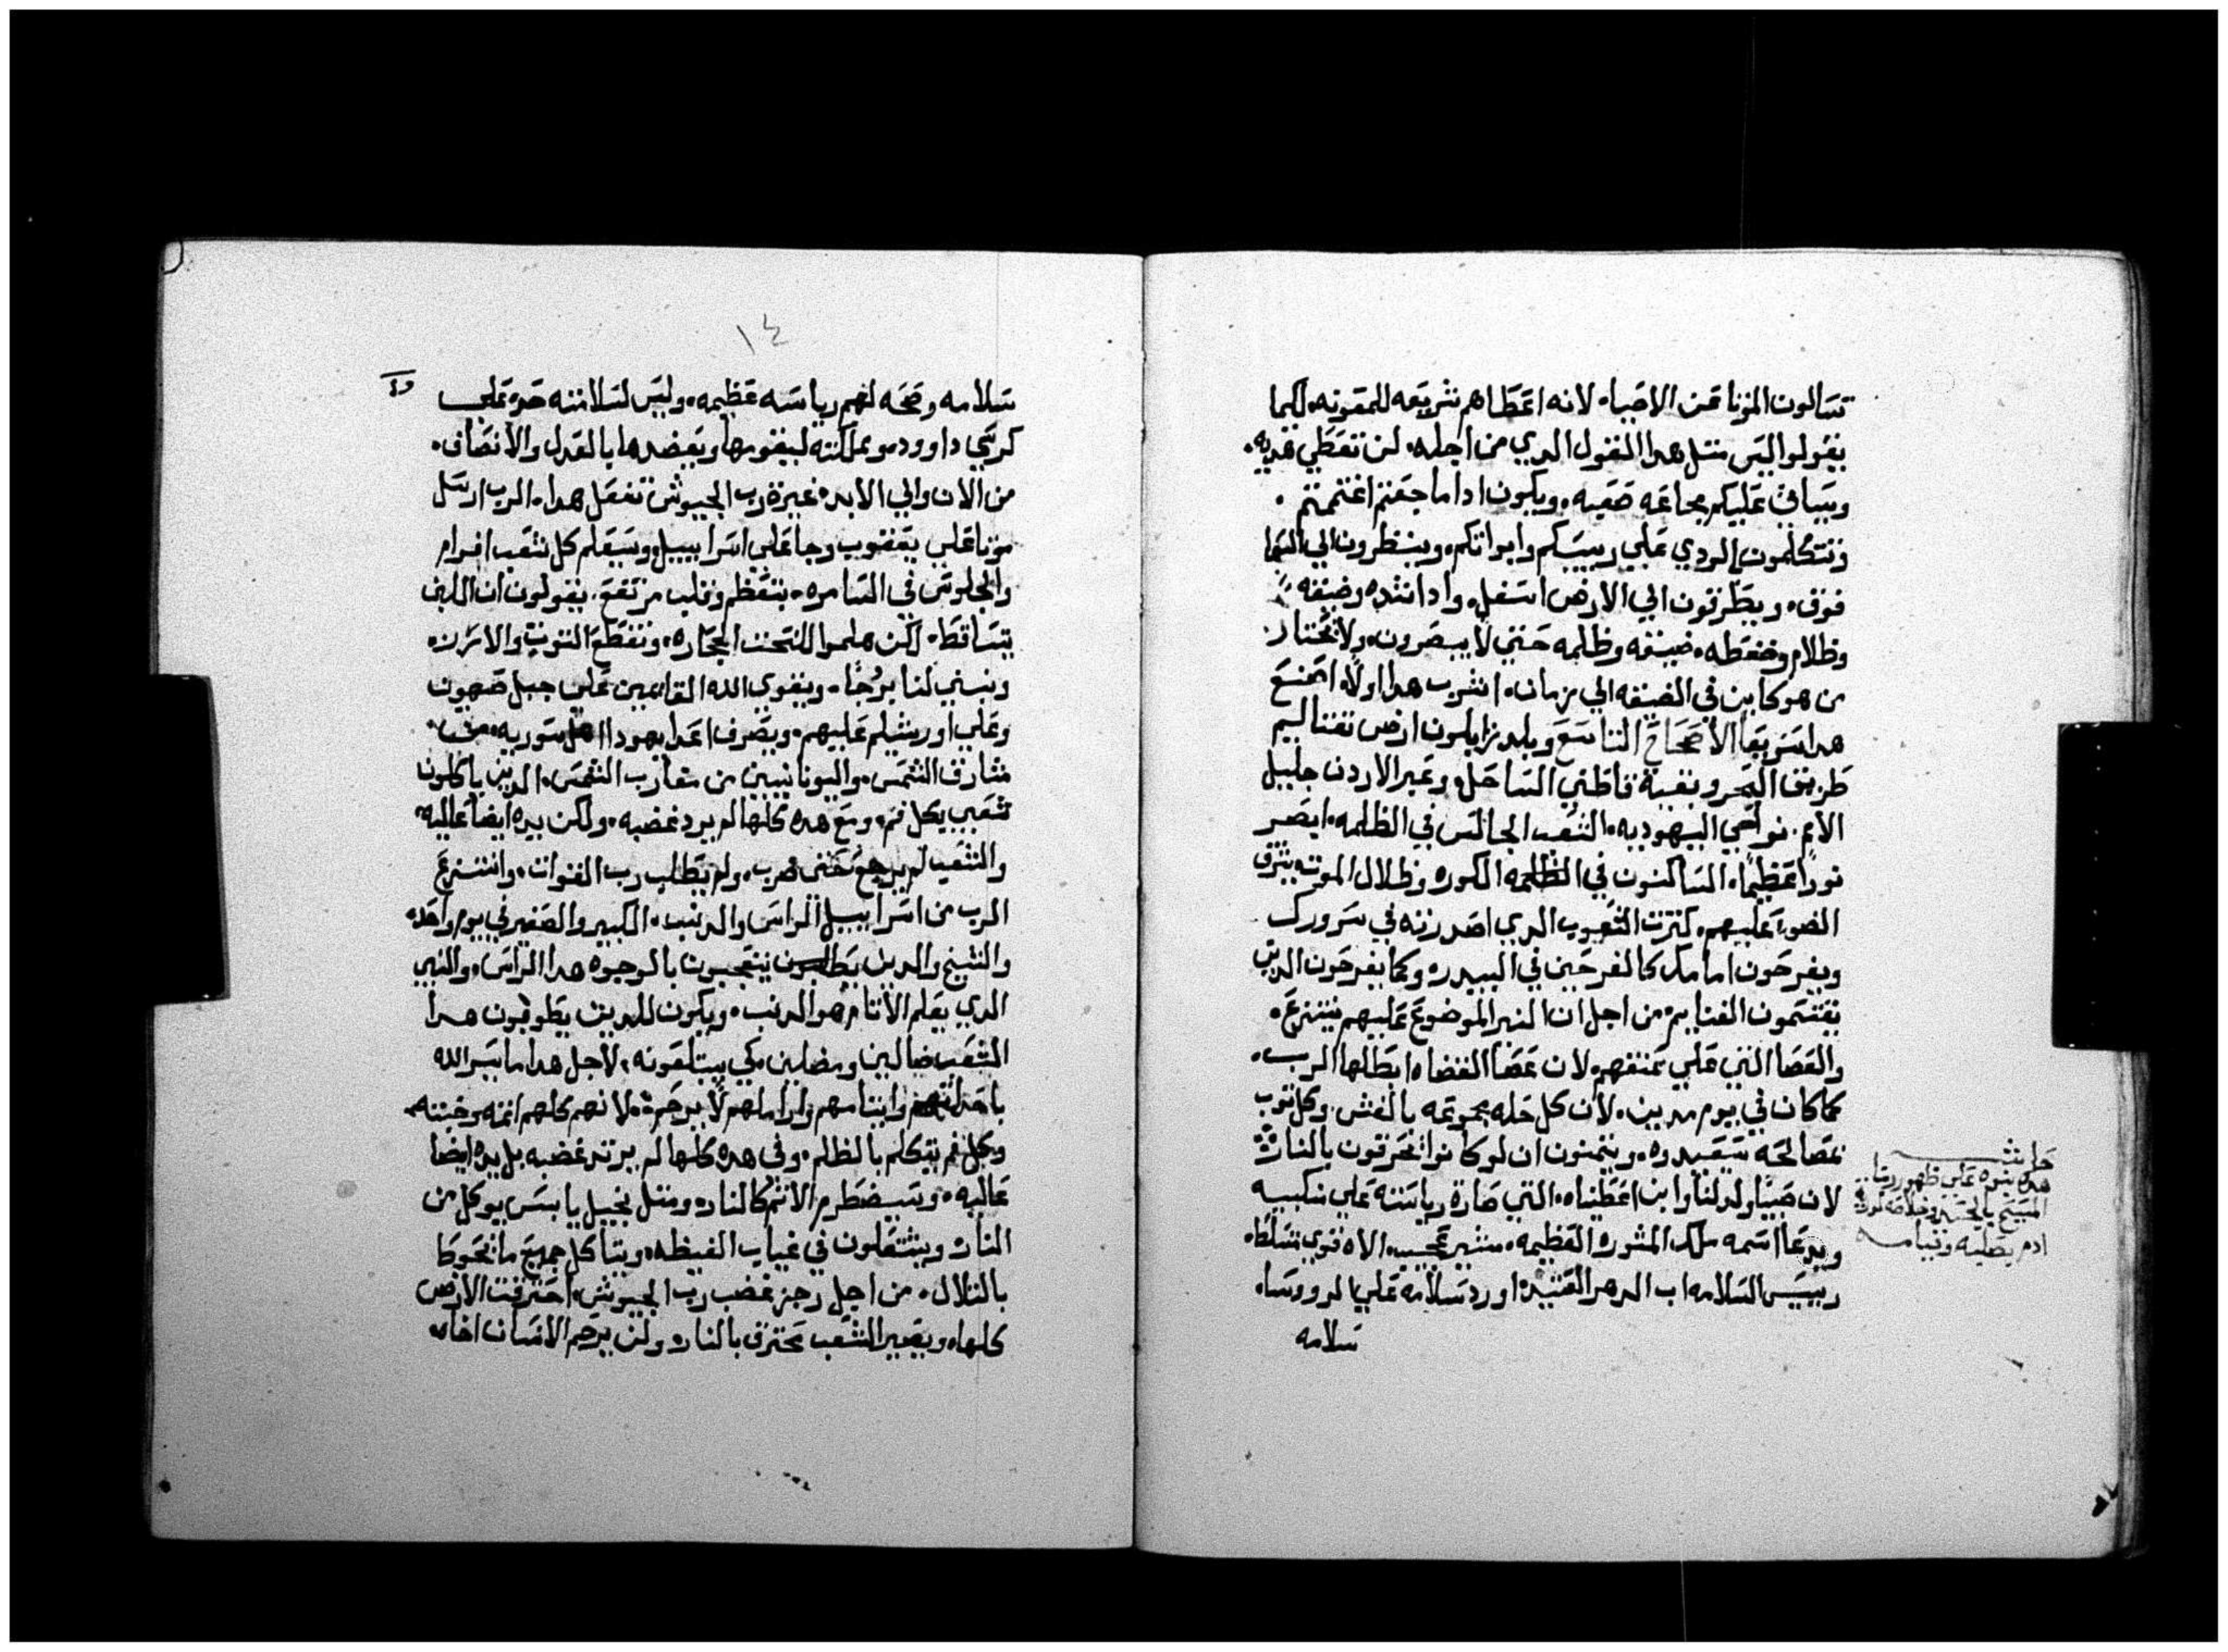 تسالون الموتا عن الاحيا، لانه اعطاهم شريعه للمعونه، لكيما
يقولوا ليس مثل هدا القول الدي من اجله، لن تعطي هديه.
وسياتي عليكم مجاعه صعبه، ويكون ادا ما جعتم اغتممتم.
وتتكلمون الردي علي رييسكم وابواتكم، وينظرون الي السما
فوق، ويطرقون الي الارض اسفل، وادا شده وضيقه
وظلام وضغطه، ضيقه وظلمه حتي لا يبصرون، ولا يختار
من هو كاين في الضيقه الي زمان، اشرب هدا اولا، اصنع
هدا سريعا الاصحاح التاسع وبلد زابلون ارض نفتاليم
طريق البحر وبقية قاطني الساحل، وعبر الاردن جليل
الامم. نواحي اليهوديه، الشعب الجالس في الظلمه، ابصر
نورا عظيما، الساكنون في الظلمه الكوره وظلال الموت يشرق
الضو عليهم، كثرت الشعوب الدي اصدرته في سرورك
ويفرحون امامك كالفرحين في البيدر، وكما يفرحون الدين
يقتسمون الغنايم، من اجل ان النير الموضوع عليهم ينتزع.
والعصا التي علي عنقهم، لان عصا القضاه ابطلها الرب،
كما كان في يوم مدين، لان كل حله مجموعه بالغش، وكل توب
بمصالحه سيعيدوه، ويتمنون ان لو كانوا تحرقون بالنار
لان صبيا ولد لنا وابن اعطيناه، التي صارة رياسته علي منكبيه
ويدعا اسمه ملك المشوره العظيمه، مشير عجيب، الاه قوي متسلط،
رييس السلامه اب الدهر العتيد، اورد سلامه علي الرووسا،
سلامه
حاشيه
هده نبوه علي ظهور ربنا
المسيح بالجسد وخلاصه لدريه
ادم بصلبه وقيامه
١٤
سلامه وصحه لهم رياسه عظيمه، وليس لسلامته حد، علي
كرسي داوود، ومملكته ليقومها ويعضدها بالعدل والانصاف.
من الان والي الابد، غيرة رب الجيوش تفعل هدا، الرب ارسل
موتا علي يعقوب وجا علي اسراييل، وسيعلم كل شعب افرام
والجلوس في السامره، بتعظم وقلب مرتفع. يقولون ان اللبن
يتساقط، لكن هلموا لننحت الحجاره، ونقطع التوت والارز،
ونبني لنا برجا، ويقوي الله القايمين علي جبل صهيون
وعلي اورشليم عليهم، ويصرف اعدا يهودا اهل سوريه، من
مشارق الشمس، واليونانيين من مغارب الشمس، الدين ياكلون
شعبي بكل فم، ومع هده كلها لم يرد غضبه، ولكن يده ايضا عاليه
والشعب لم يرجع حتي ضرب، ولم يطلب رب القوات، وانتزع
الرب من اسراييل الراس والدنب، الكبير والصغير في يوم واحد،
والشيخ والدين يتعجبون بالوجوه هدا الراس، والنبي
الدي يعلم الاتام هو الدنب، ويكون للدين يطوبون هدا
الشعب ضالين ومضلين، كي يبتلعونه، لاجل هدا ما يسر الله
باحداثهم وايتامهم واراملهم لا يرحم، لانهم كلهم اتمه وخبثه.
وكل فم يتكلم بالظلم، وفي هده كلها لم يرتد غضبه بل يده ايضا
عاليه، وسيضطرم الاتم كالنار، ومثل نجيل يابس يوكل من
النار، ويشتعلون في غياب الغيظه، ويتاكل جميع ما نحوط
بالتلال، من اجل رجز غضب رب الجيوش، احترقت الارض
كلها، ويصير الشعب محترق بالنار، ولن يرحم الانسان اخاه